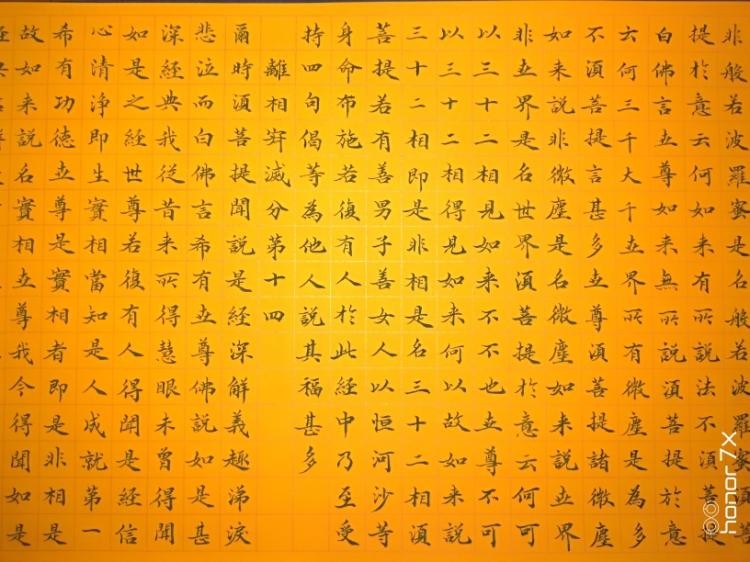 非般若波羅蜜是名般若波羅蜜須菩
提於意云何如來有所說法不須菩提
白佛言世尊如來無所說須菩提於意
云何三千大千世界所有微塵是為多
不須菩提言甚多世尊須菩提諸微塵
如來說非微塵是名微塵如來說世界
非世界是名世界須菩提於意云何可
以三十二相見如來不不也世尊不可
以三十二相得見如來何以故如來說
三十二相即是非相是名三十二相須
菩提若有善男子善女人以恒河沙等
身命布施若復有人於此經中乃至受
持四句偈等為他人說其福甚多
離相寂滅分第十四
爾時須菩提聞說是經深解義趣涕淚
悲泣而白佛言希有世尊佛說如是甚
深經典我從昔來所得慧眼未曾得聞
如是之經世尊若復有人得聞是經信
心清淨即生實相當知是人成就第一
希有功德世尊是實相者即是非相是
故如來說名實相世尊我今得聞如是
honor 7X